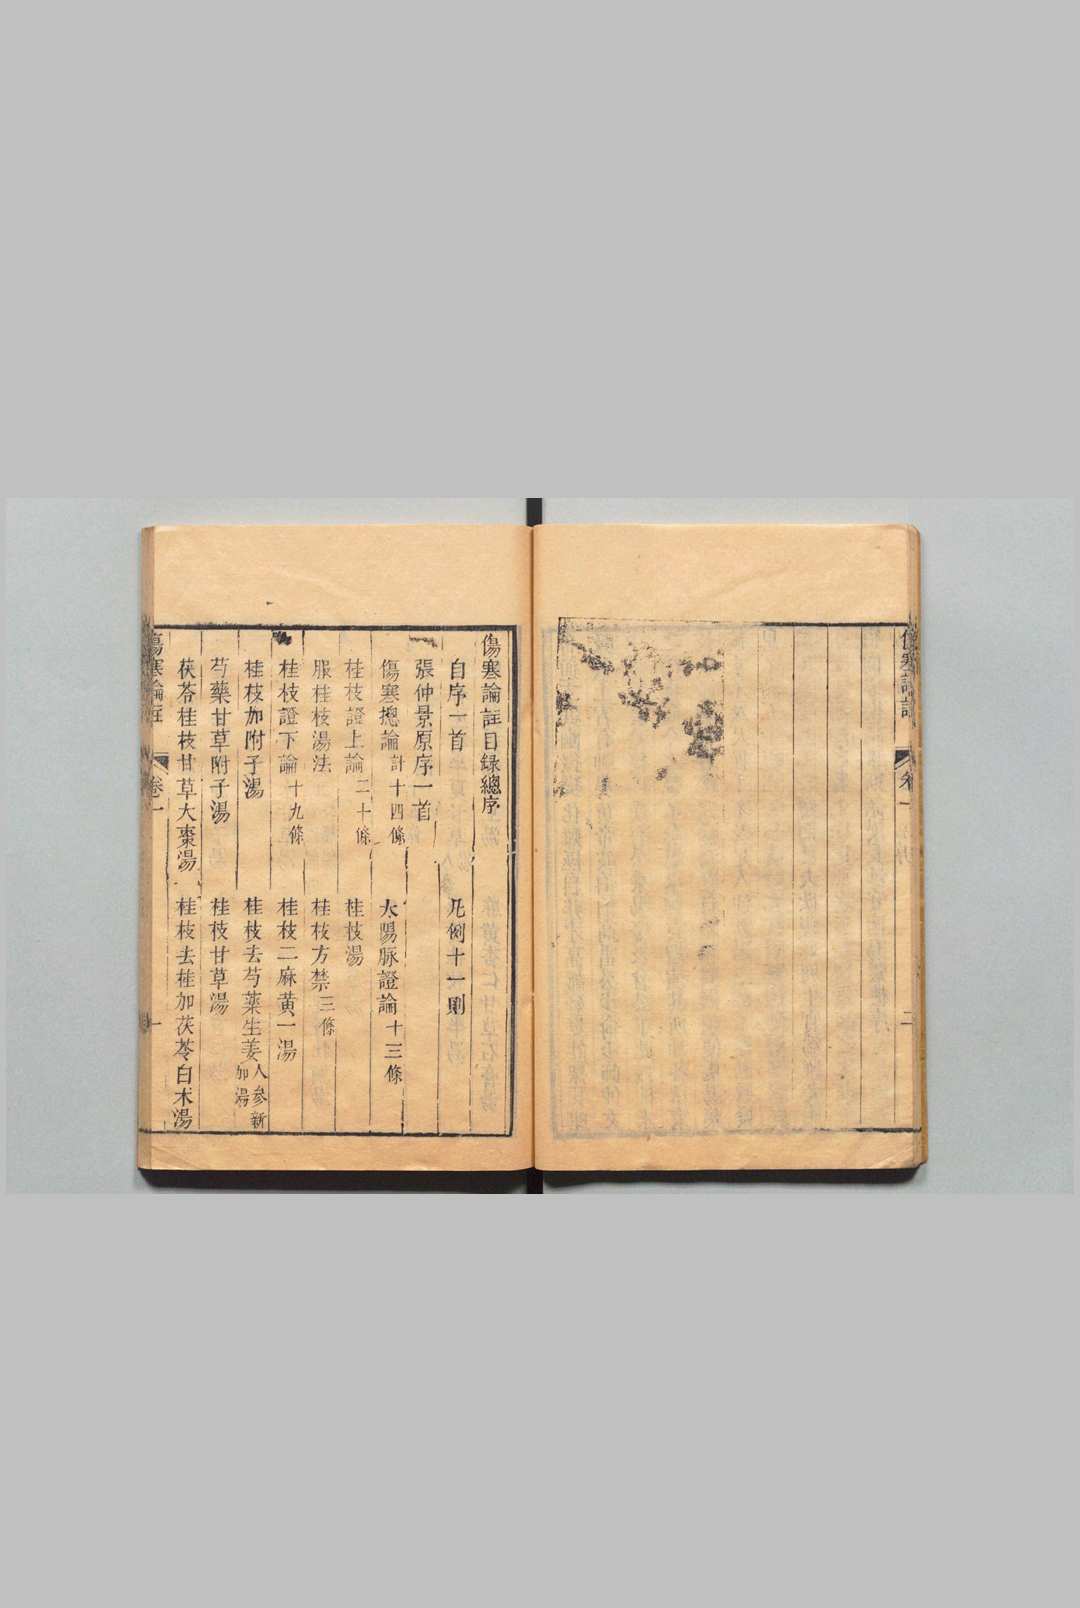 傷寒論註
卷一
二
傷寒論註目録總序
自序一首
凡例十一則
張仲景原序一首
傷寒摠論計十四條
太陽脈證論十三條
桂枝證上論二十條
桂枝湯
服桂枝湯法
桂枝方禁三條
桂枝證下論十九條
桂枝二麻黄一湯
桂枝加附子湯
桂枝去芍藥生姜人參新加湯
芍藥甘草附子湯
桂枝甘草湯
茯苓桂枝甘草大棗湯
桂枝去桂加茯苓白术湯
傷寒論註
卷一
一